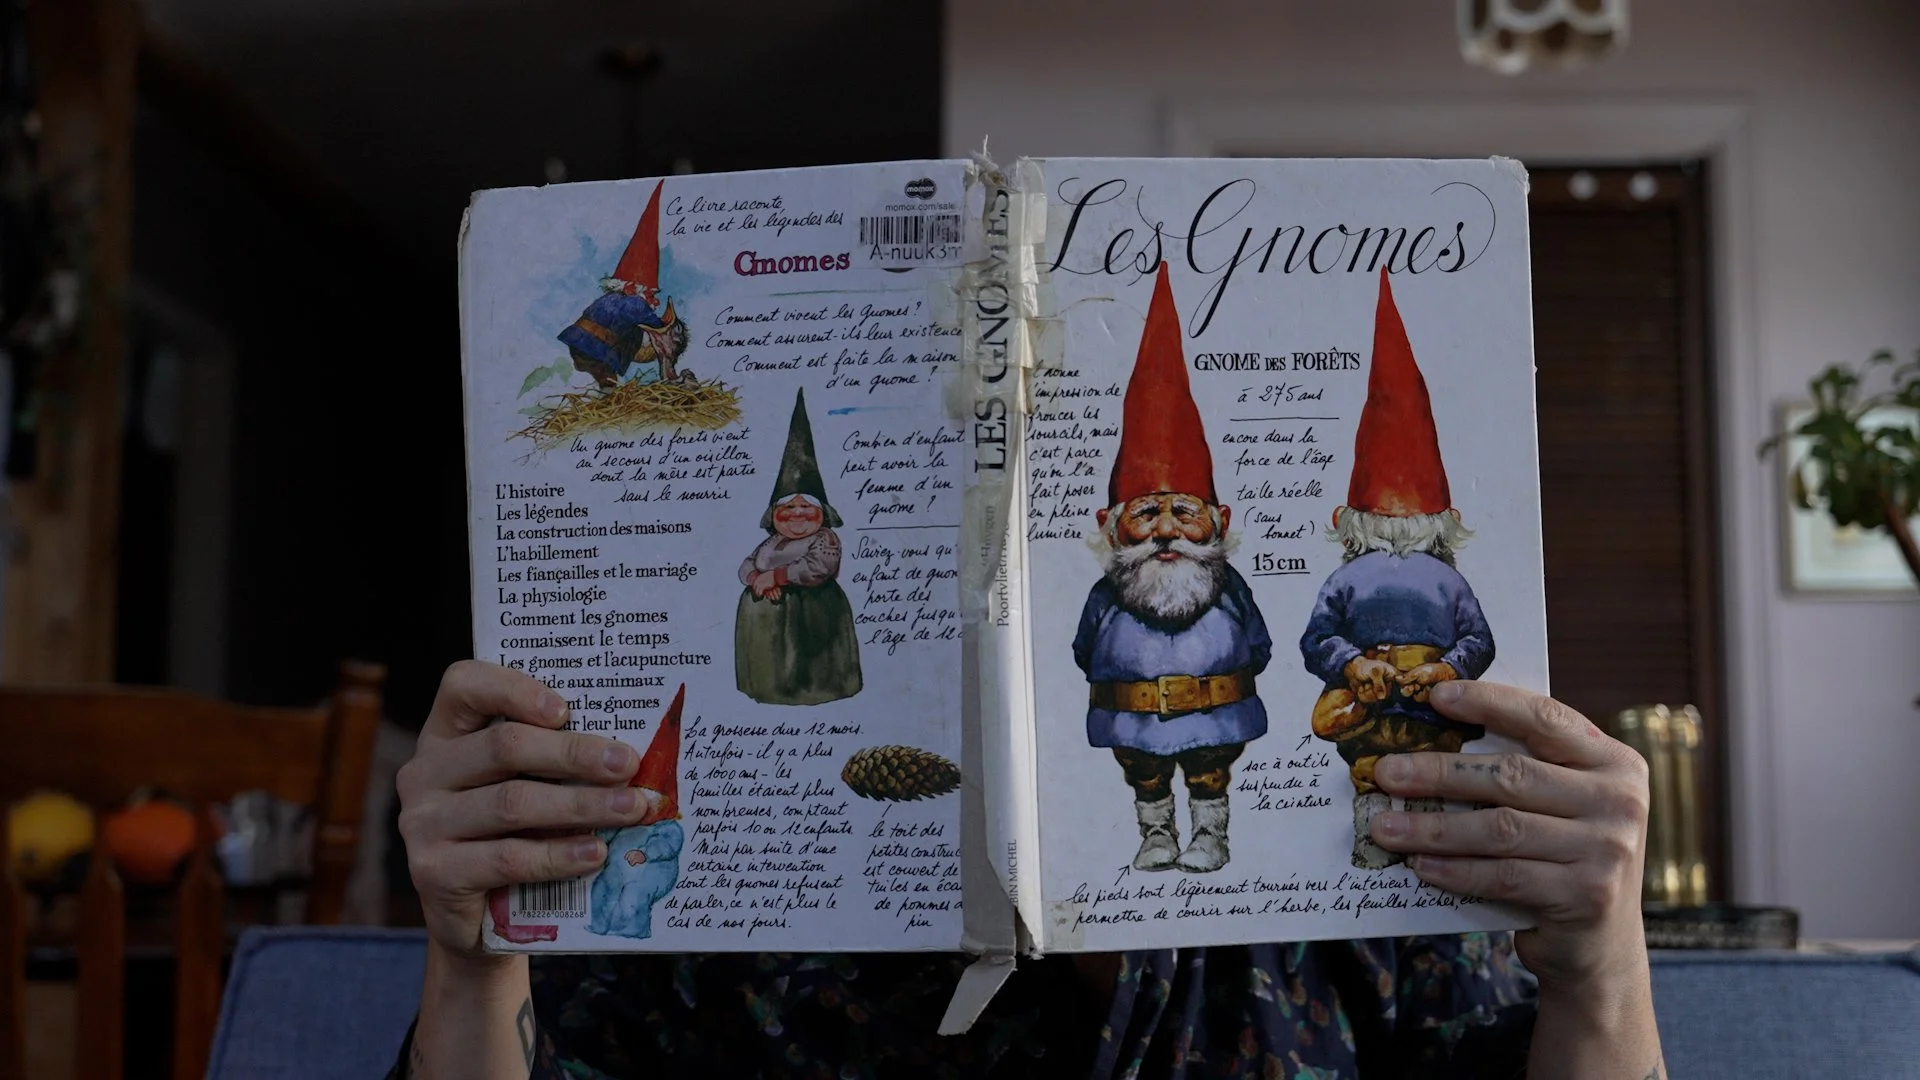 Ce livre raconte,
la vie et les légendes des
Gnomes
momox
momox.com/sale
A-nuuk3
Comment vivent les Gnomes ?
Comment assurent-ils leur existence
Comment est faite la maison
d'un gnome ?
Un gnome des forets vient
au secours d'un oisillon
dont la mère est partie
sans le nourrir
L'histoire
Les légendes
La construction des maisons
L'habillement
Les fiançailles et le mariage
La physiologie
Comment les gnomes
connaissent le temps
Les gnomes et l'acupuncture
aux animaux
les gnomes
leur lune
Combien d'enfant
peut avoir la
femme d'un
gnome ?
Saviez-vous qu'
enfant de gnom
porte des
couches jusqu'
l'âge de 12
La grossesse dure 12 mois.
Autrefois - il y a plus
de 1000 ans - les
familles étaient plus
nombreuses, comptant
parfois 10 ou 12 enfants.
Mais par suite d'une
certaine intervention
dont les gnomes refusent
de parler, ce n'est plus le
cas de nos jours.
le toit des
petites construc
est couvert de
tuiles en éca
de pommes d
pin
9 782226 008268
LES GNOMES
Poortvliet/Huygen
BIN MICHEL
Les Gnomes
GNOME DES FORÊTS
à 275 ans
encore dans la
force de l'âge
taille réelle
(sans
bonnet)
15cm
donne
l'impression de
froncer les
sourcils, mais
c'est parce
qu'on l'a
fait poser
en pleine
lumière
sac à outils
suspendu à
la ceinture
les pieds sont légèrement tournés vers l'intérieur
permettre de courir sur l'herbe, les feuilles sèches, etc